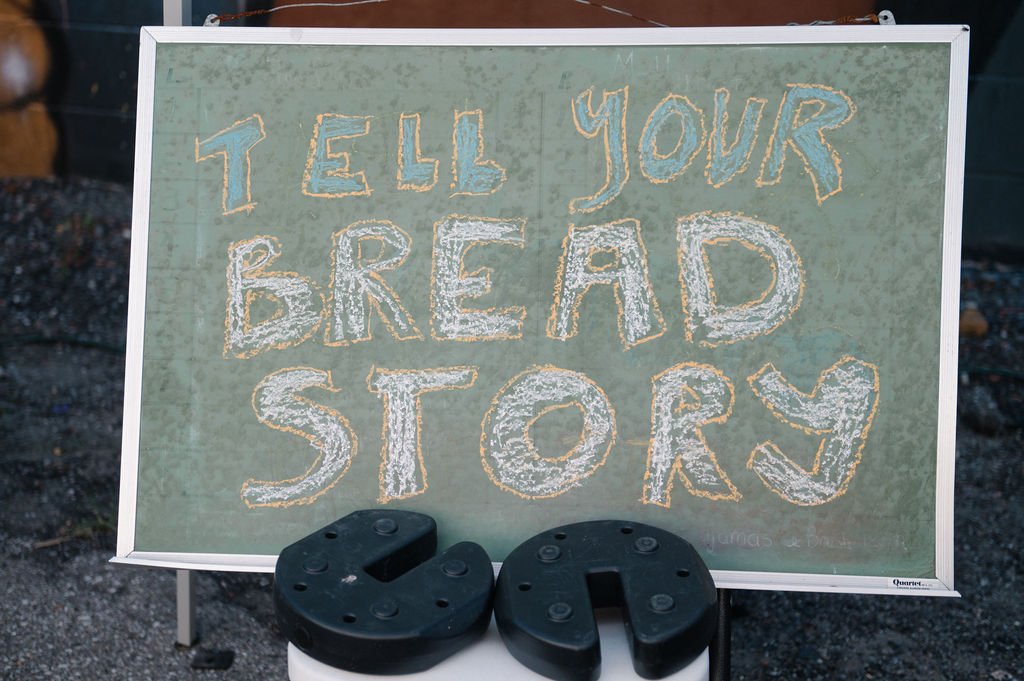 TELL YOUR
BREAD
STORY
Quartet